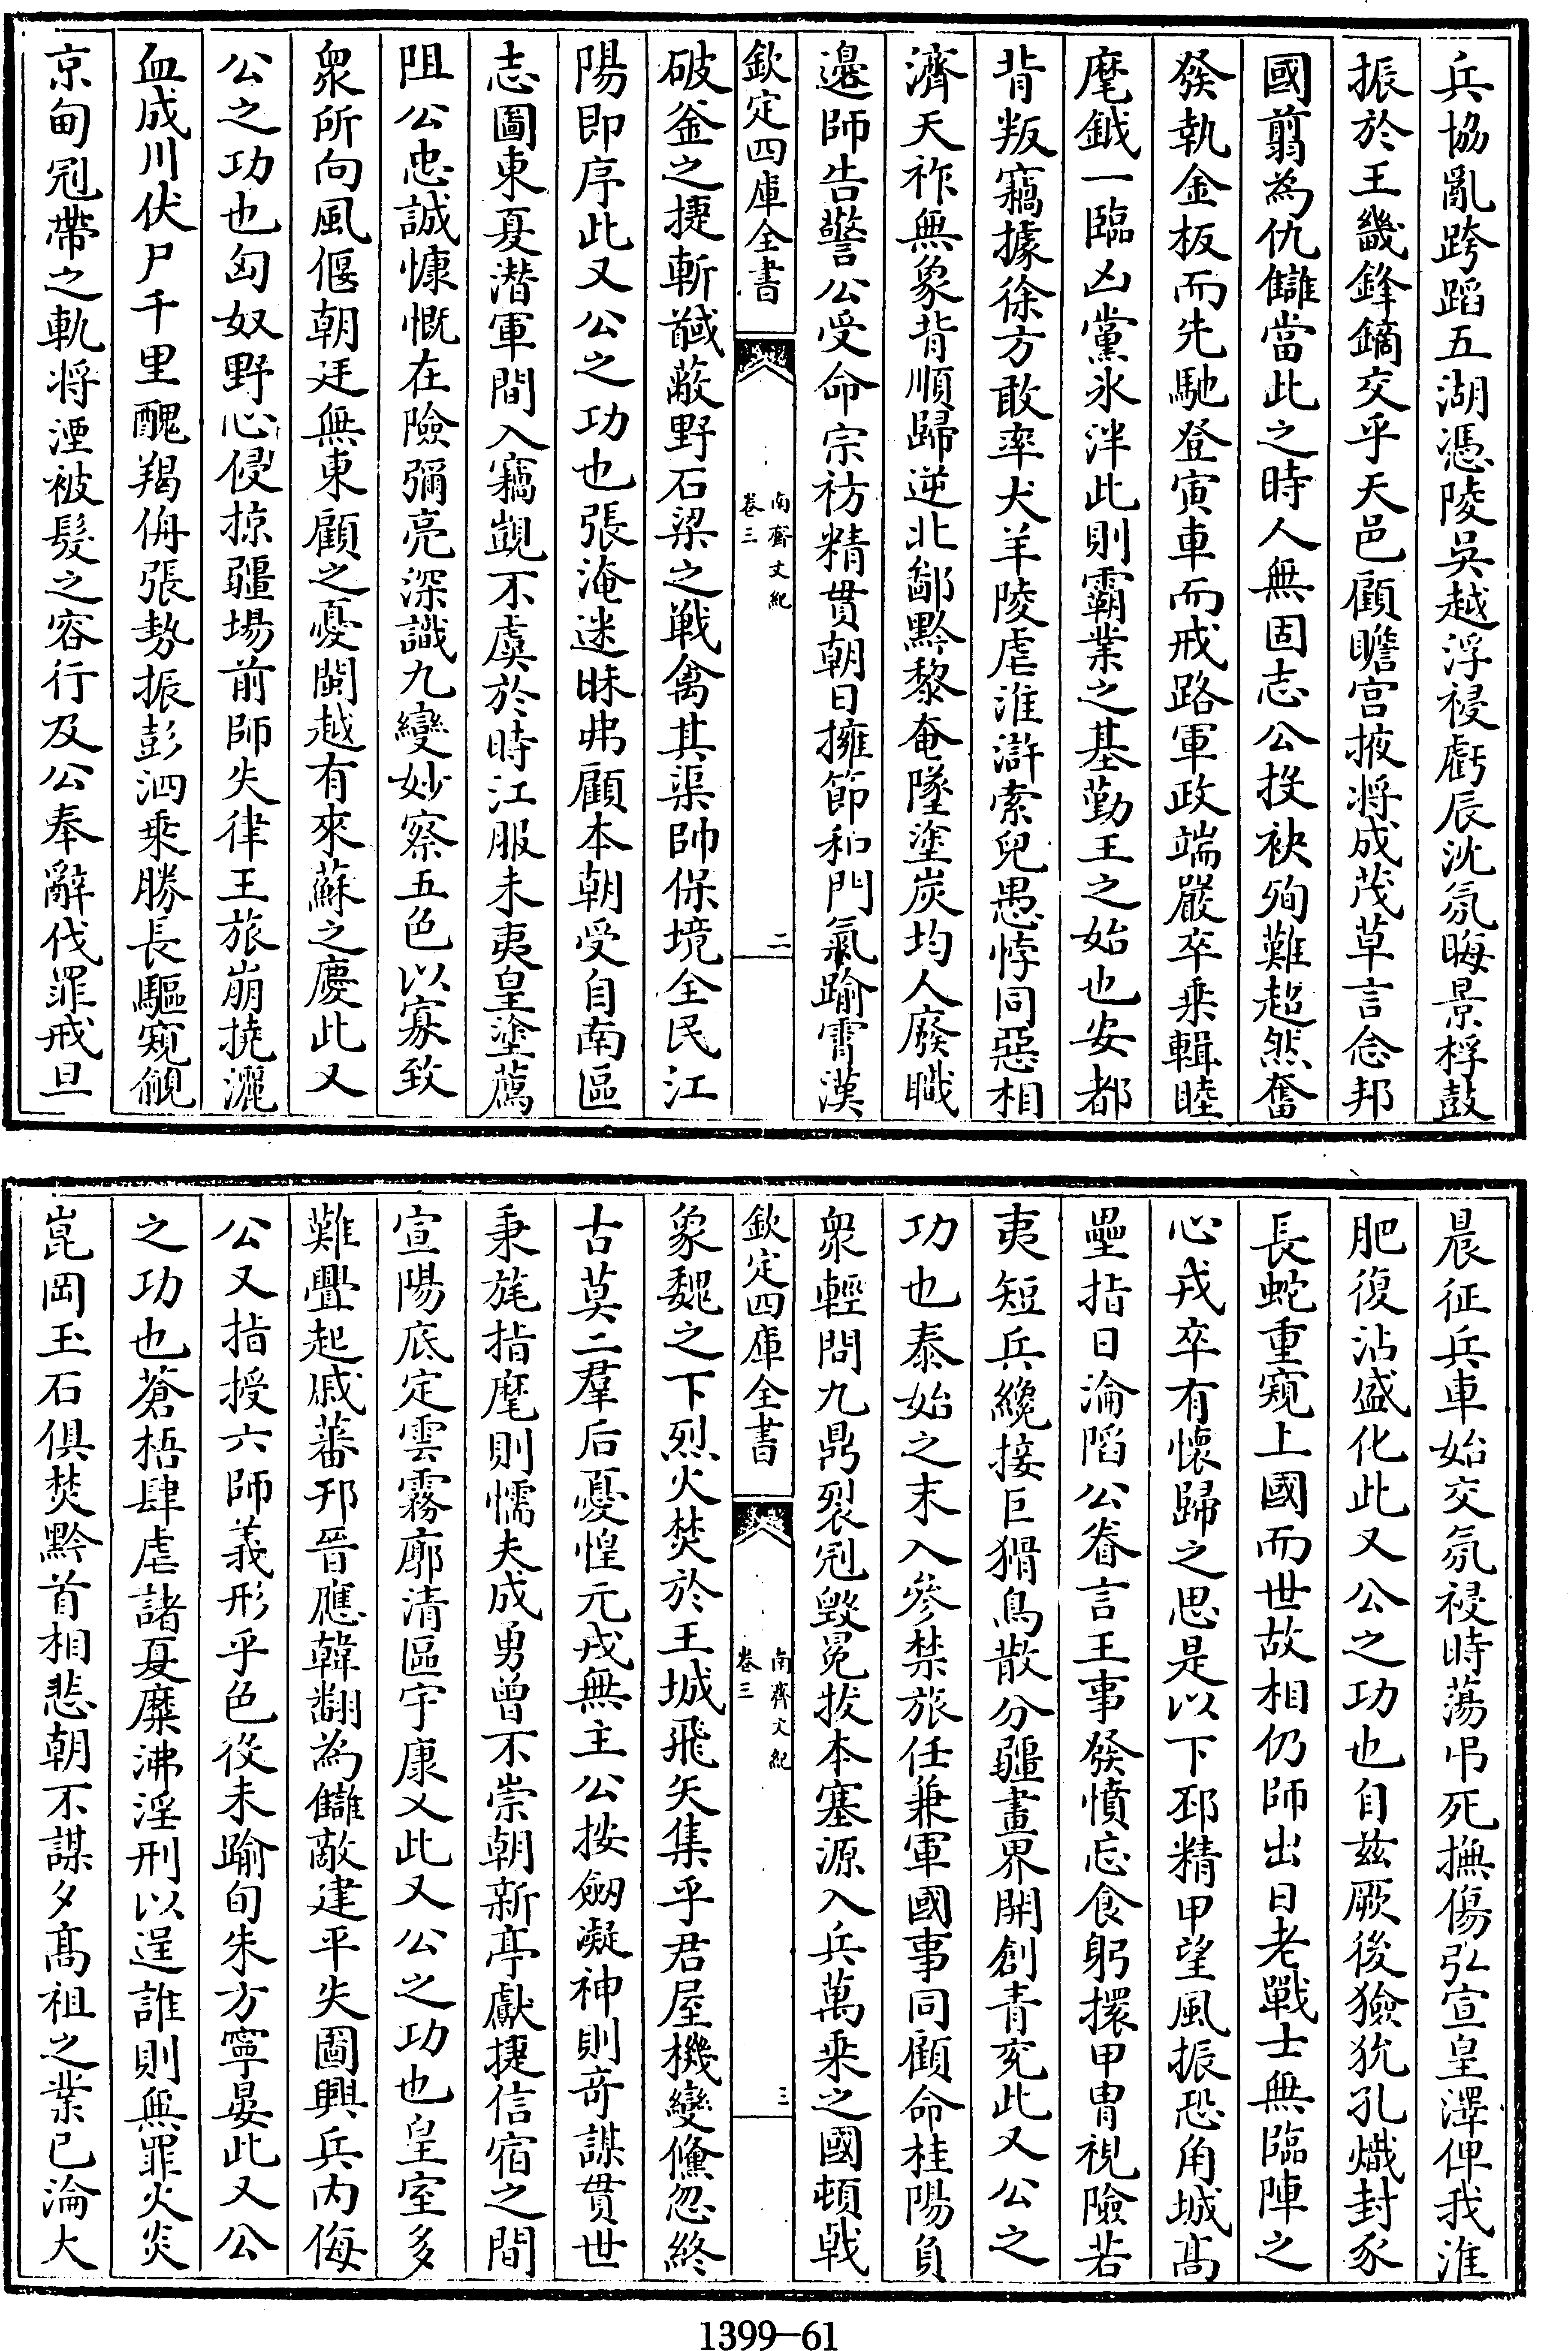 兵協亂跨蹈五湖憑陵吳越浮祲虧辰沈氛晦景桴鼓
振於王畿鋒鏑交乎天邑顧瞻宫掖將成茂草言念邦
國翦為仇讎當此之時人無固志公投袂殉難超然奮
發執金板而先馳登寅車而戒路軍政端嚴卒乘輯睦
麾鉞一臨凶黨氷泮此則霸業之基勤王之始也安都
背叛竊據徐方敢率犬羊陵虐淮滸索兒愚悖同惡相
濟天祚無象背順歸逆北鄙黔黎奄墜塗炭均人廢職
邊師告警公受命宗祊精貫朝日擁節和門氣踰霄漢
欽定四庫全書
南齊文紀
卷三
二
破釜之捷斬馘蔽野石梁之戰禽其渠帥保境全民江
陽即序此又公之功也張淹迷昧弗顧本朝受自南區
志圖東夏潛軍間入竊覬不虞於時江服未夷皇塗薦
阻公忠誠慷慨在險彌亮深識九變妙察五色以寡致
衆所向風偃朝廷無東顧之憂閩越有來蘇之慶此又
公之功也匈奴野心侵掠疆場前師失律王旅崩撓灑
血成川伏尸千里醜羯侜張勢振彭泗乘勝長驅窺覦
京甸冠帶之軌將湮被髮之容行及公奉辭伐罪戒旦
晨征兵車始交氛祲時蕩弔死撫傷弘宣皇澤俾我淮
肥復沾盛化此又公之功也自兹厥後獫狁孔熾封豕
長蛇重窺上國而世故相仍師出日老戰士無臨陣之
心戎卒有懷歸之思是以下邳精甲望風振恐角城髙
壘指日淪陷公眷言王事發憤忘食躬擐甲胄視險若
夷短兵纔接巨猾鳥散分疆畫界開創青兖此又公之
功也泰始之末入參禁旅任兼軍國事同顧命桂陽負
衆輕問九鼎裂冠毀冕拔本塞源入兵萬乘之國頓戟
欽定四庫全書
南齊文紀
卷三
三
象魏之下烈火焚於王城飛矢集乎君屋機變儵忽終
古莫二羣后憂惶元戎無主公按劒凝神則竒謀貫世
秉旄指麾則懦夫成勇曾不崇朝新亭獻捷信宿之間
宣陽底定雲霧廓清區宇康乂此又公之功也皇室多
難釁起戚蕃邘晉應韓翻為讎敵建平失圖興兵内侮
公又指授六師義形乎色役未踰旬朱方寧晏此又公
之功也蒼梧肆虐諸夏糜沸淫刑以逞誰則無罪火炎
崑岡玉石俱焚黔首相悲朝不謀夕髙祖之業已淪大
1399—61